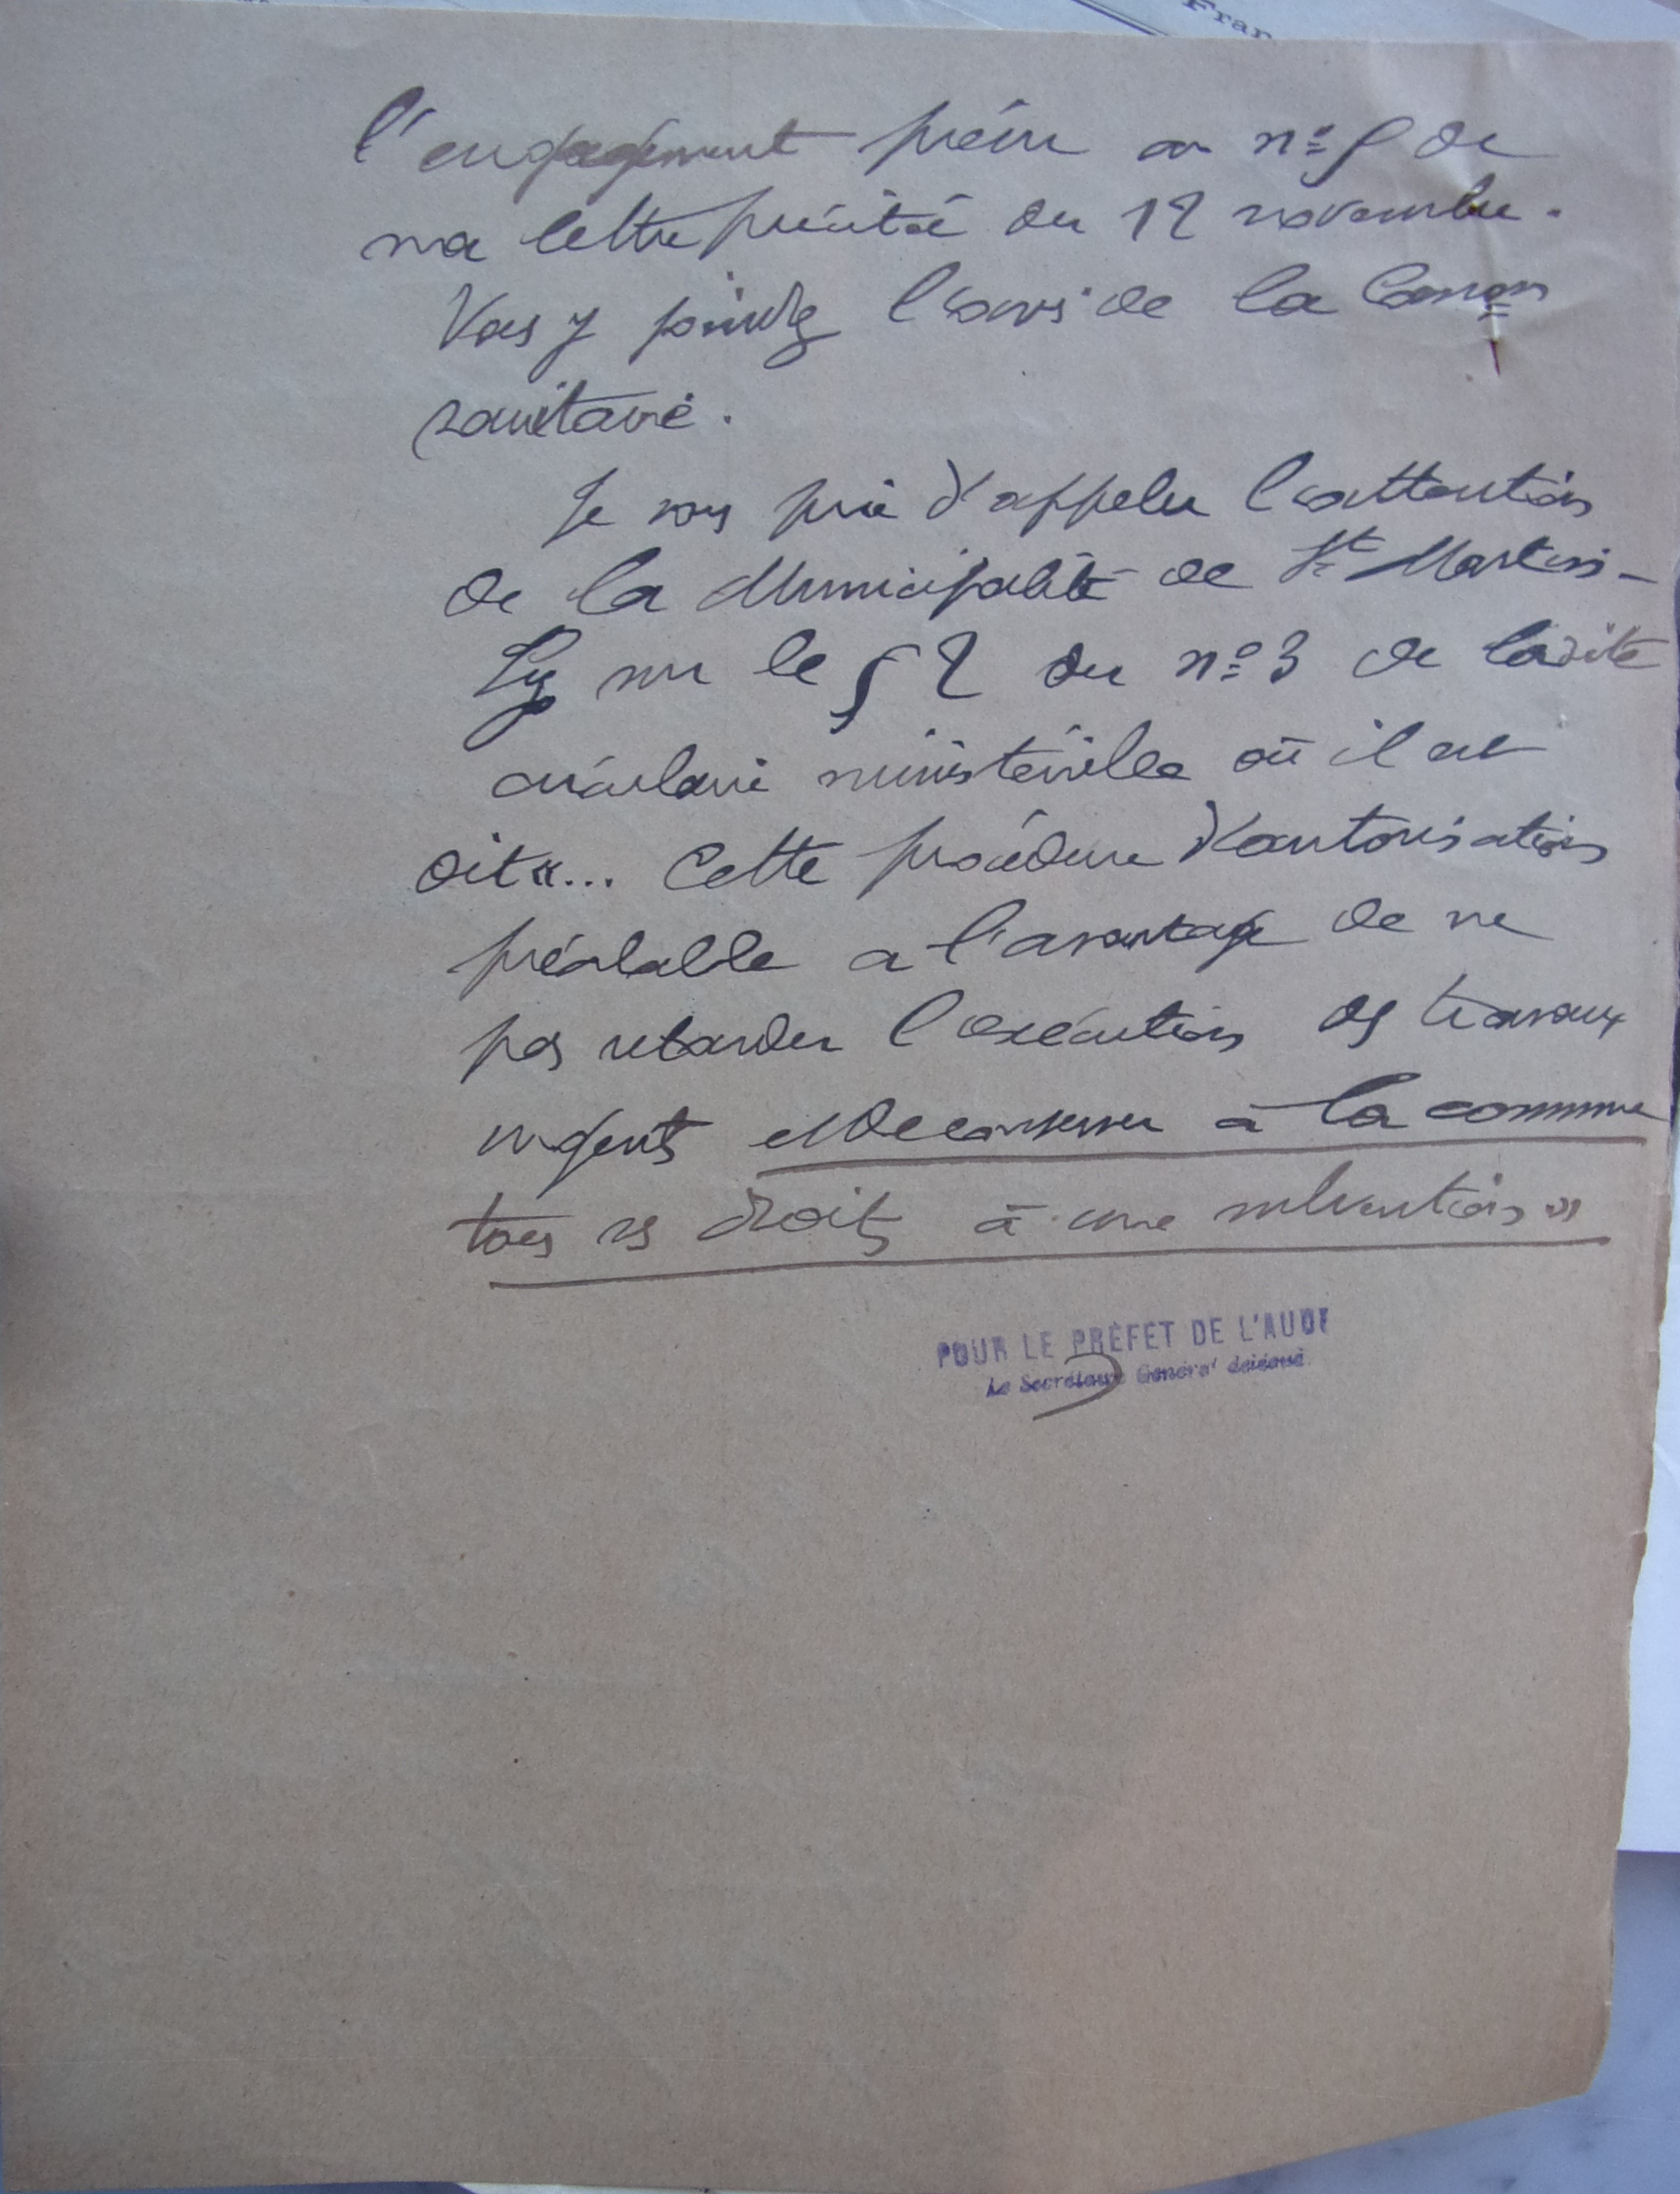 Fran
l'engagement prévu au n° 5 de
ma lettre précitée du 12 novembre.
Vous y joindrez l'avis de la Comon
sanitaire.
Je vous prie d'appeler l'attention
de la Municipalité de St Martin-
Lys sur le § 2 du n° 3 de ladite
circulaire ministérielle où il est
dit «... Cette procédure d'autorisation
préalable a l'avantage de ne
pas retarder l'exécution des travaux
urgents et de conserver à la commune
tous ses droits à une subvention »
POUR LE PRÉFET DE L'AUDE
Le Secrétaire Général délégué